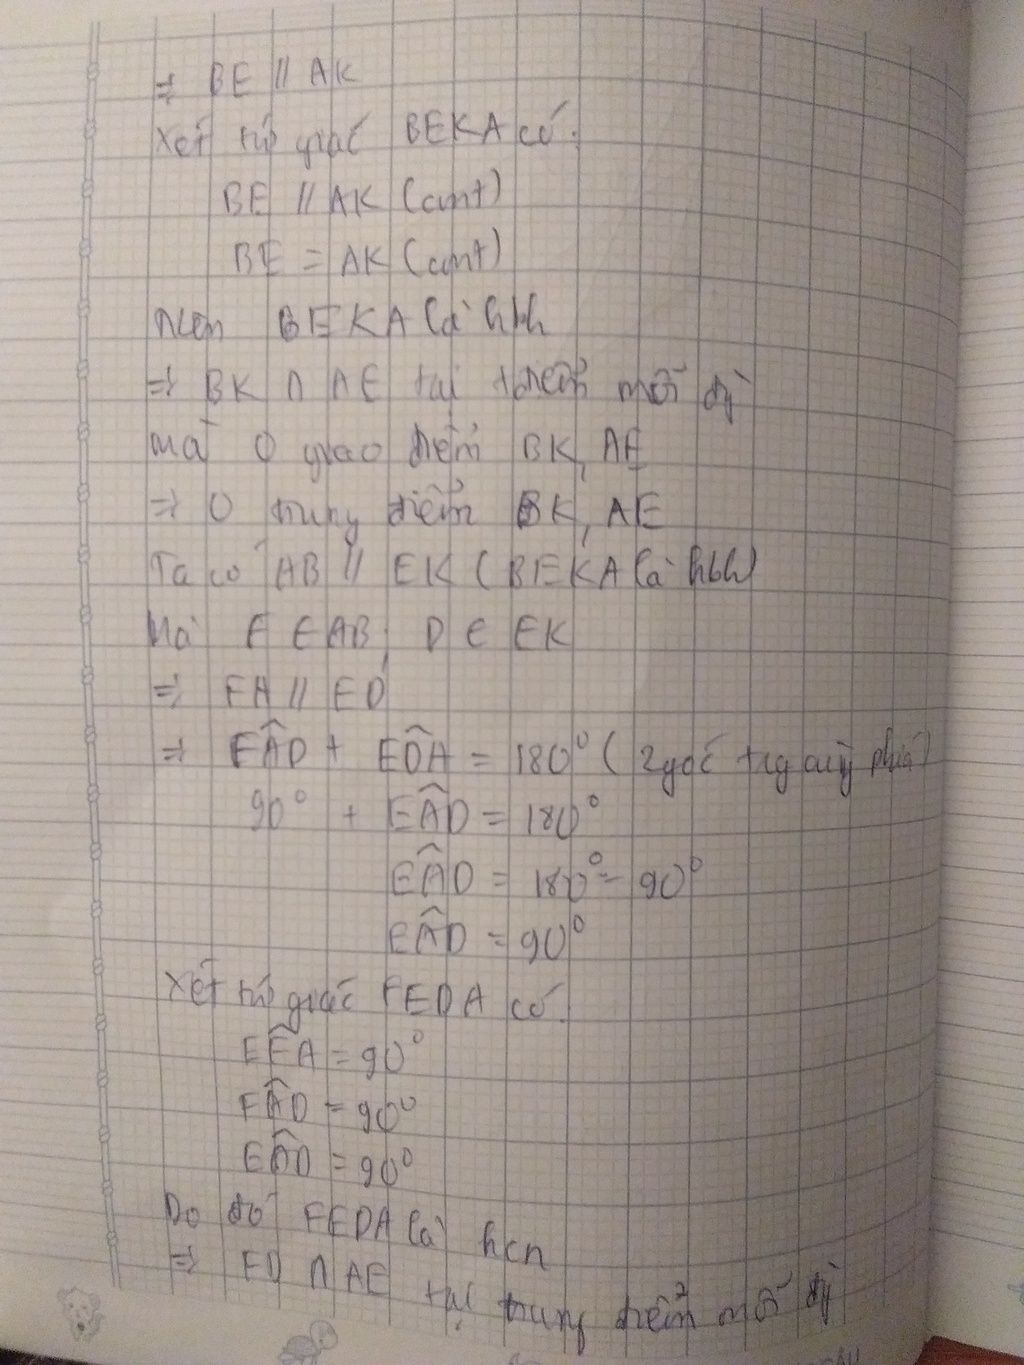 => BE // AK
Xét tứ giác BEKA có:
BE // AK (cmt)
BE = AK (cmt)
nên BEKA là hbh
=> BK ∩ AE tại tđiểm mỗi đg
mà O giao điểm BK, AE
=> O trung điểm BK, AE
Ta có AB // EK (BEKA là hbh)
Mà F ∈ AB, D ∈ EK
=> FA // ED
=> FÂD + EDA = 180° (2 góc trg cùng phía)
90° + EÂD = 180°
EÂD = 180° - 90°
EÂD = 90°
Xét tứ giác FEDA có.
EFA = 90°
FÂD = 90°
EÂD = 90°
Do đó FEDA là hcn
=> FD ∩ AE tại trung điểm mỗi đg